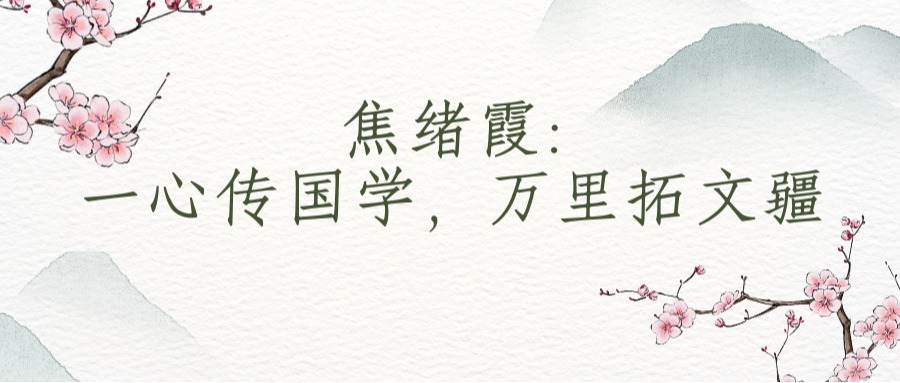 焦绪霞:
一心传国学，万里拓文疆